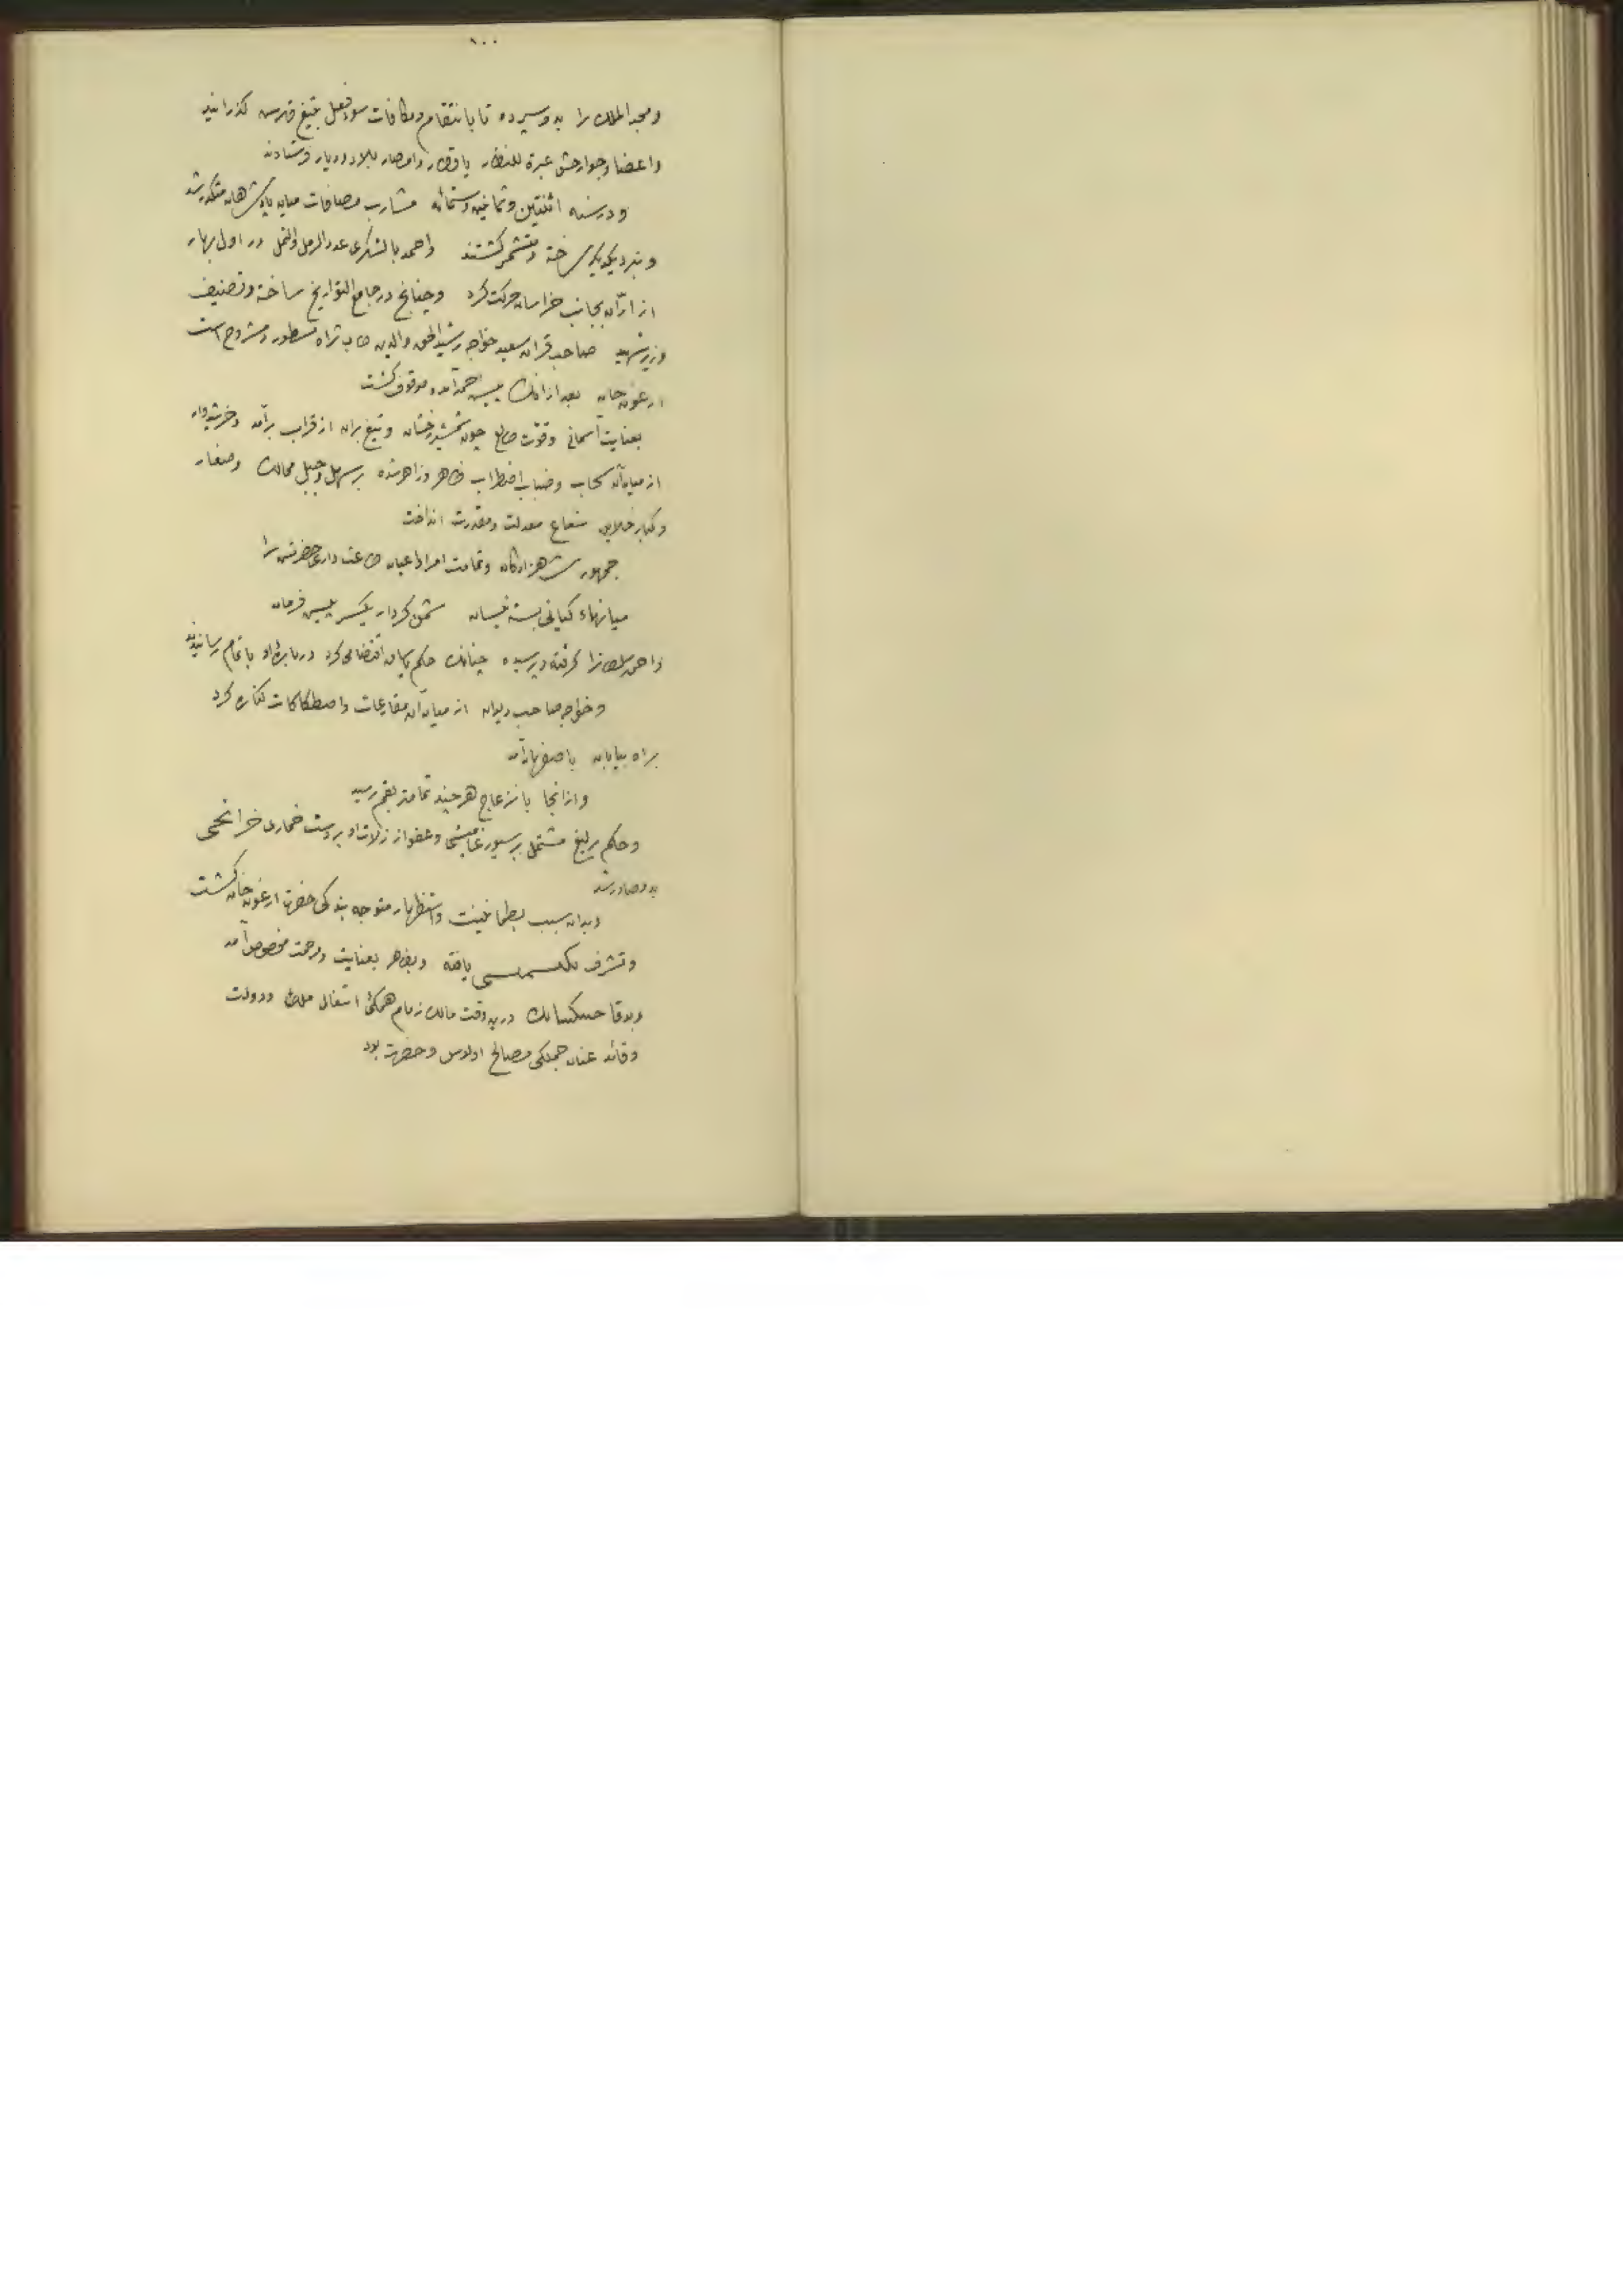 ١٠٠
ومجد الملک را بدو سپرده تا بانتقام ومکافات سوء فعل بتیغ قهرس کذرانید
واعضا وجوارحش عبرة للنظار باقطار وامصار بلاد ودیار فرستادند
ودرسنه اثنتین وثمانین وستمائه مشارب مصافات میان پادشاهان متکدر شد
وبنبرد یکدیکر ساخته ومتشمر کشتند واحمد بالشکری عدد الرمل والنمل در اول بهار
از ارّان بجانب خراسان حرکت کرد وچنانچ در جامع التواریخ ساخته وتصنیف
وزیر شهید صاحب قران سعید خواجه رشید الحق والدین طاب ثراه مسطور ومشروح است
ارغون خان بعد از انک پیش احمد آمد وموقوف کشت
بعنایت آسمانی وقوّت طالع چون شمشیر رخشان وتیغ بران از قراب برآمد وخرشیدوار
از میان آن سحاب وضباب اضطراب ظاهر وزاهر شده بر سهل وجبل ممالک وصغار
وکبار خلایق شعاع معدلت ومقدرت انداخت
جمهور شهزادکان وتمامت امرا واعیان طاعت داری حضرتش را
میانهاء کیانی بسته پیشان شمن کردار یکسر پیش فرمان
واحمد سلطانرا کرفته وپرسیده چنانک حکم یاسا اقتضا می کرد در باره او باتمام رسانیدند
وخواجه صاحب دیوان از میان آن مقارعات واصطکاکات کناره کرد
براه بیابان باصفهان آمد
وازانجا بانزعاج هرچند تمامتر بقم رسید
وحکم یرلیغ مشتمل بر سیورغامیشی وعفو از زلات او بر دست خماری خرانجی
بدو صادر شد
وبدان سبب بطمانینت واستظهار متوجه بندکی حضرت ارغون خان کشت
وتشرف یافته وبظاهر بعنایت ومرحمت مخصوص آمد
وبوقا درین وقت مالک زمام همکی اشغال ملک ودولت
وقائد عنان جملکی مصالح اولوس وحضرت بود